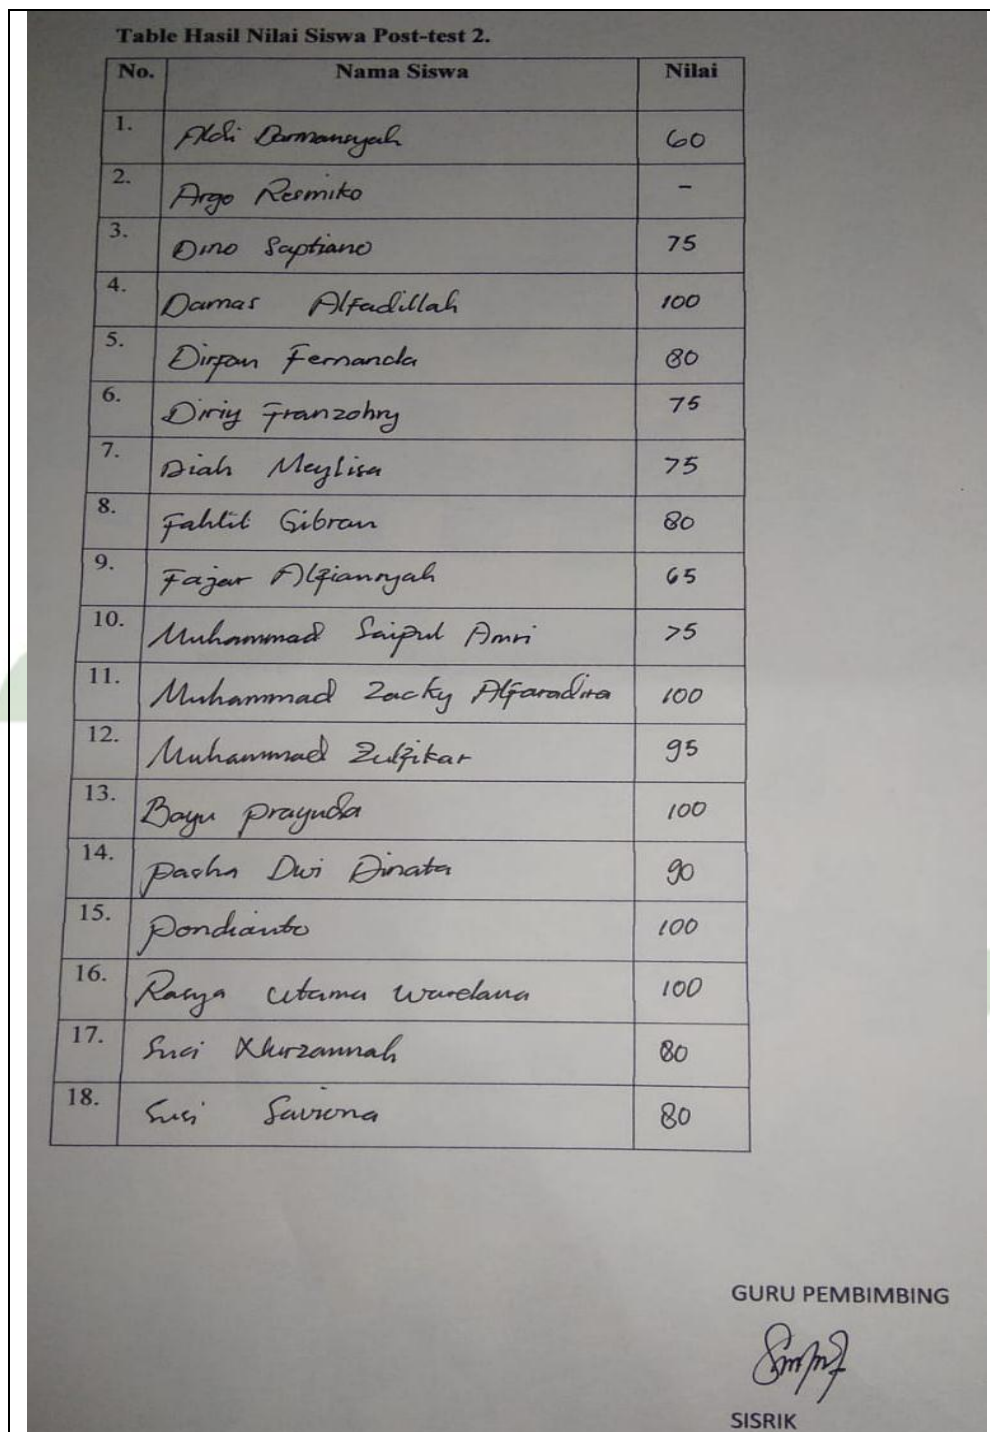 Table Hasil Nilai Siswa Post-test 2.
No. Nama Siswa Nilai
1. Aldi Darmansyah 60
2. Argo Resmiko -
3. Dino Saptiano 75
4. Damas Alfadillah 100
5. Dirfan Fernanda 80
6. Diriy Franzohry 75
7. Diah Meylisa 75
8. Fahlil Gibran 80
9. Fajar Alfiansyah 65
10. Muhammad Saipul Amri 75
11. Muhammad Zacky Alfaradira 100
12. Muhammad Zulfikar 95
13. Bayu Prayuda 100
14. Pasha Dwi Dinata 90
15. Pondianto 100
16. Rasya Utama Wardana 100
17. Suci 80
18. Susi 80
GURU PEMBIMBING
SISRIK